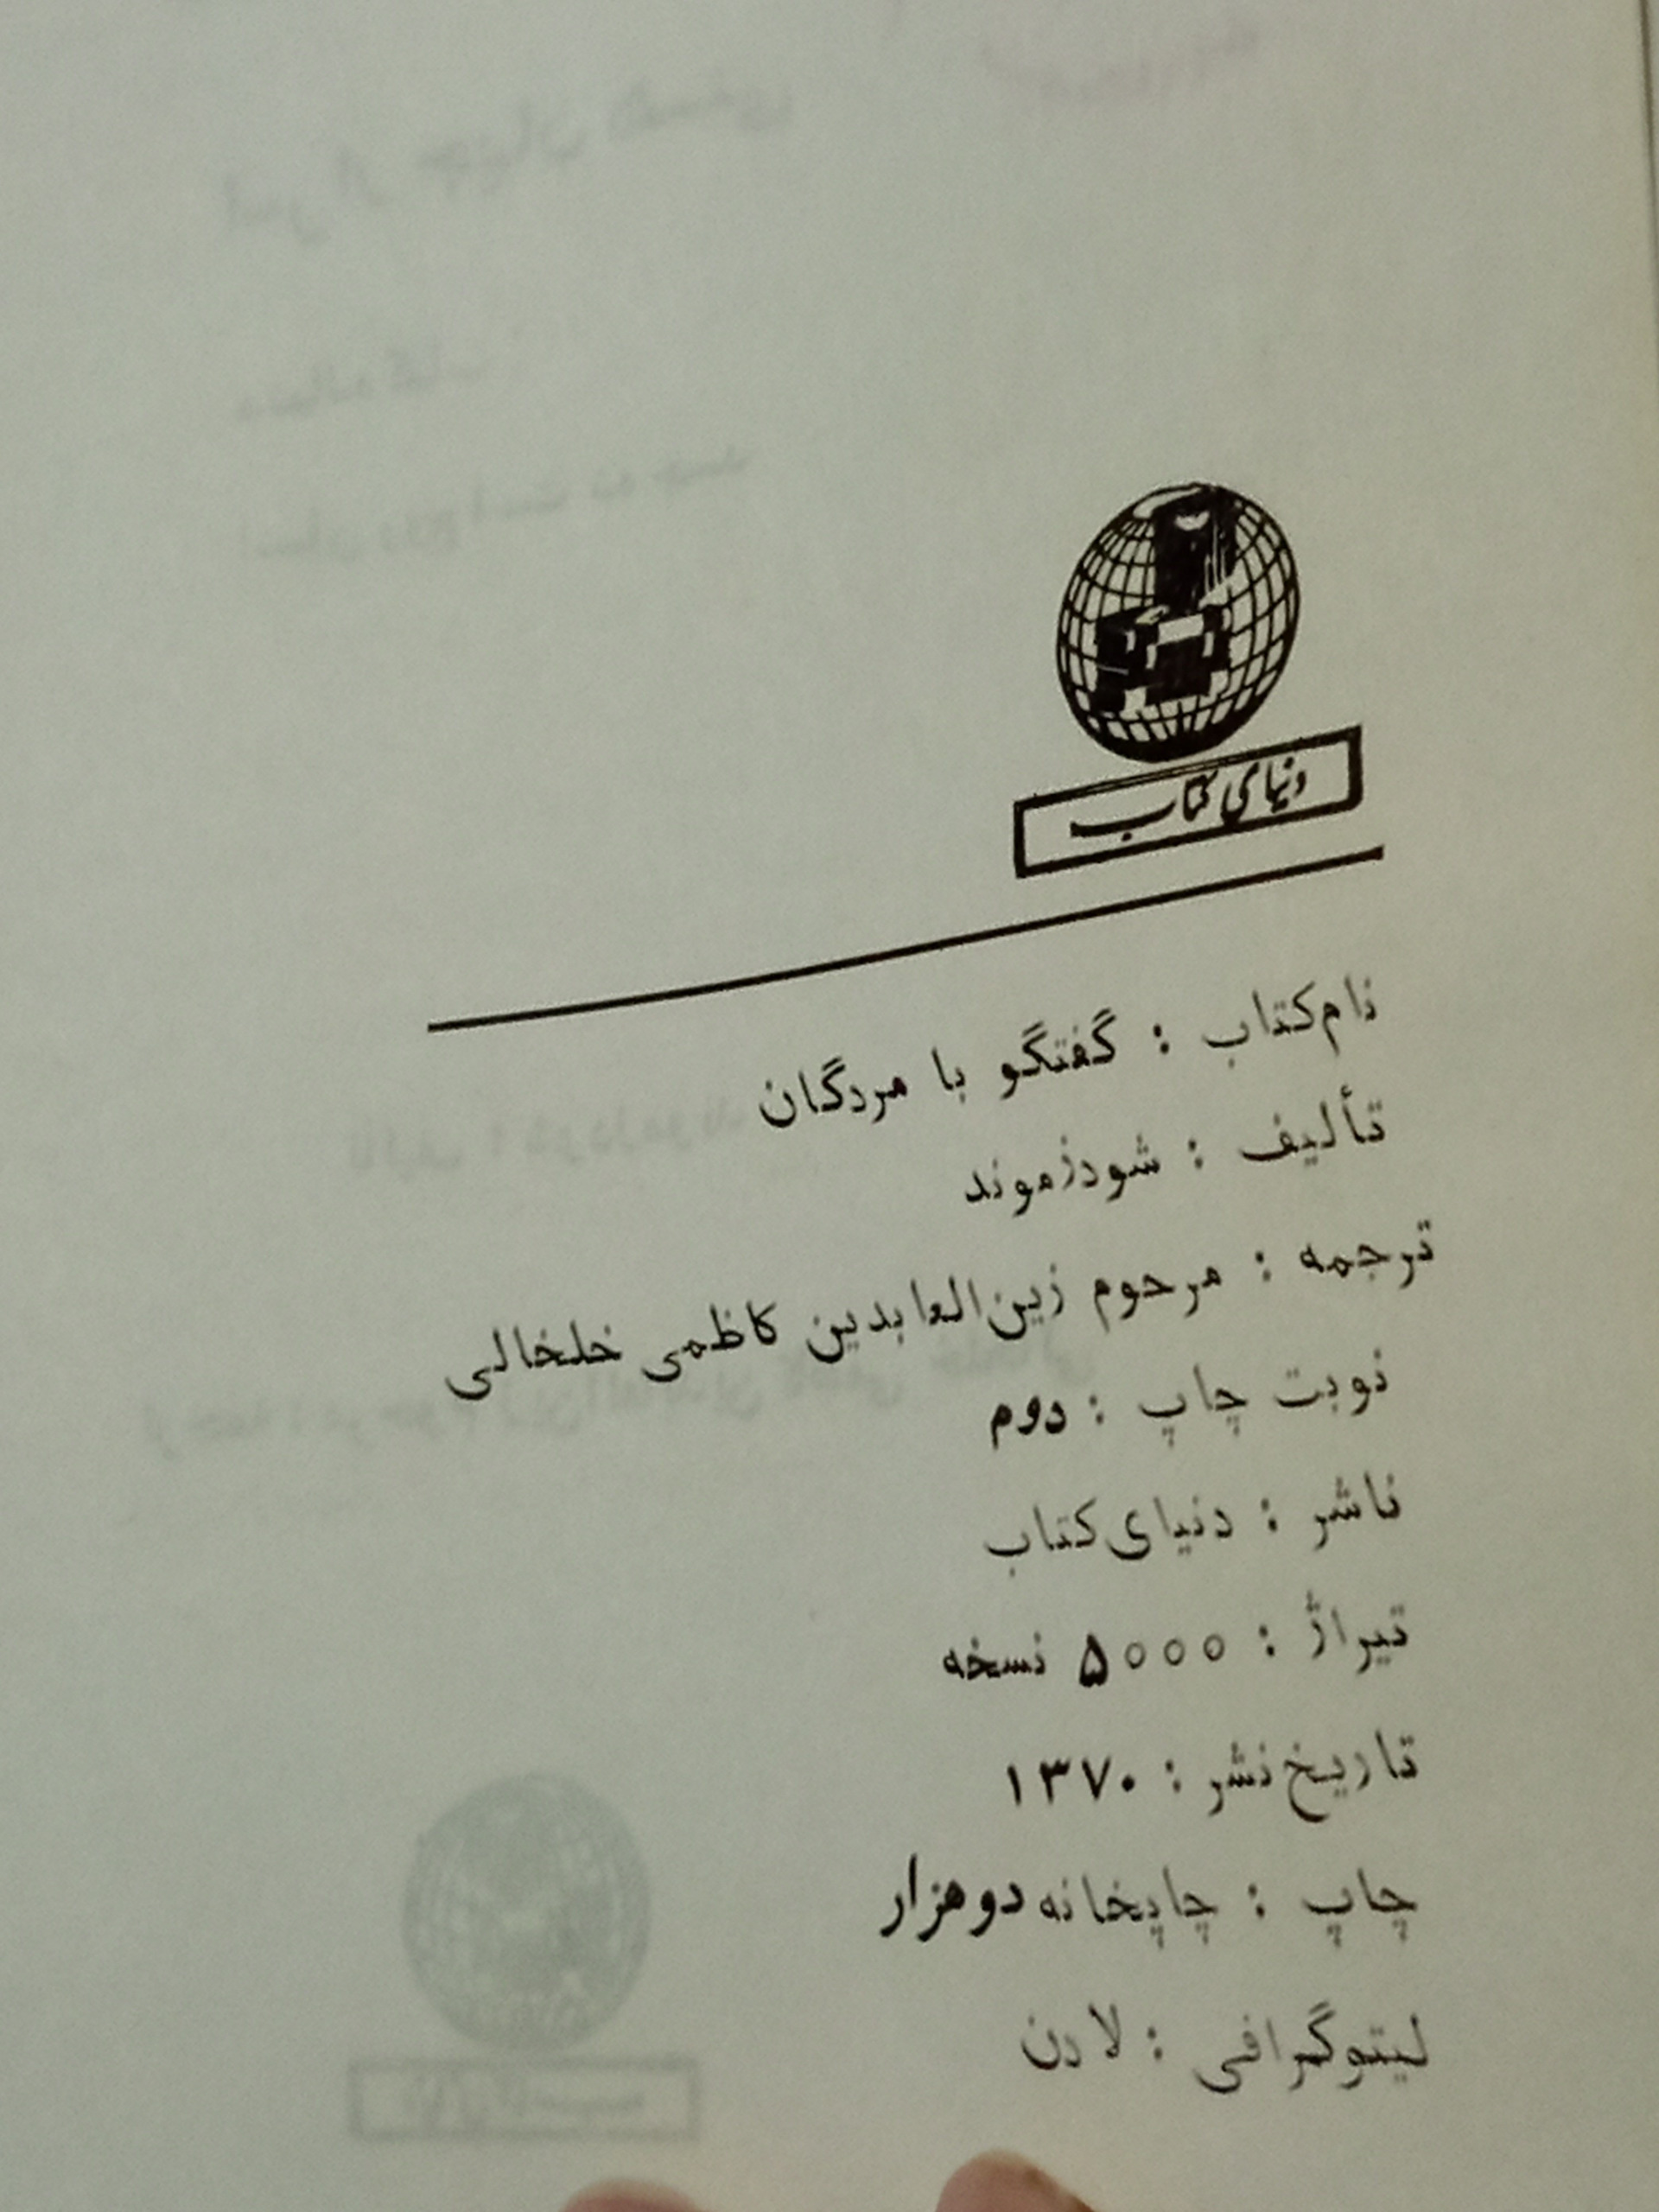 دنیای کتاب
نام‌کتاب : گفتگو با مردگان
تألیف : شودزموند
ترجمه : مرحوم زین‌العابدین کاظمی خلخالی
نوبت چاپ : دوم
ناشر : دنیای‌کتاب
تیراژ : ۵۰۰۰ نسخه
تاریخ‌نشر : ۱۳۷۰
چاپ : چاپخانه دوهزار
لیتوگرافی : لادن